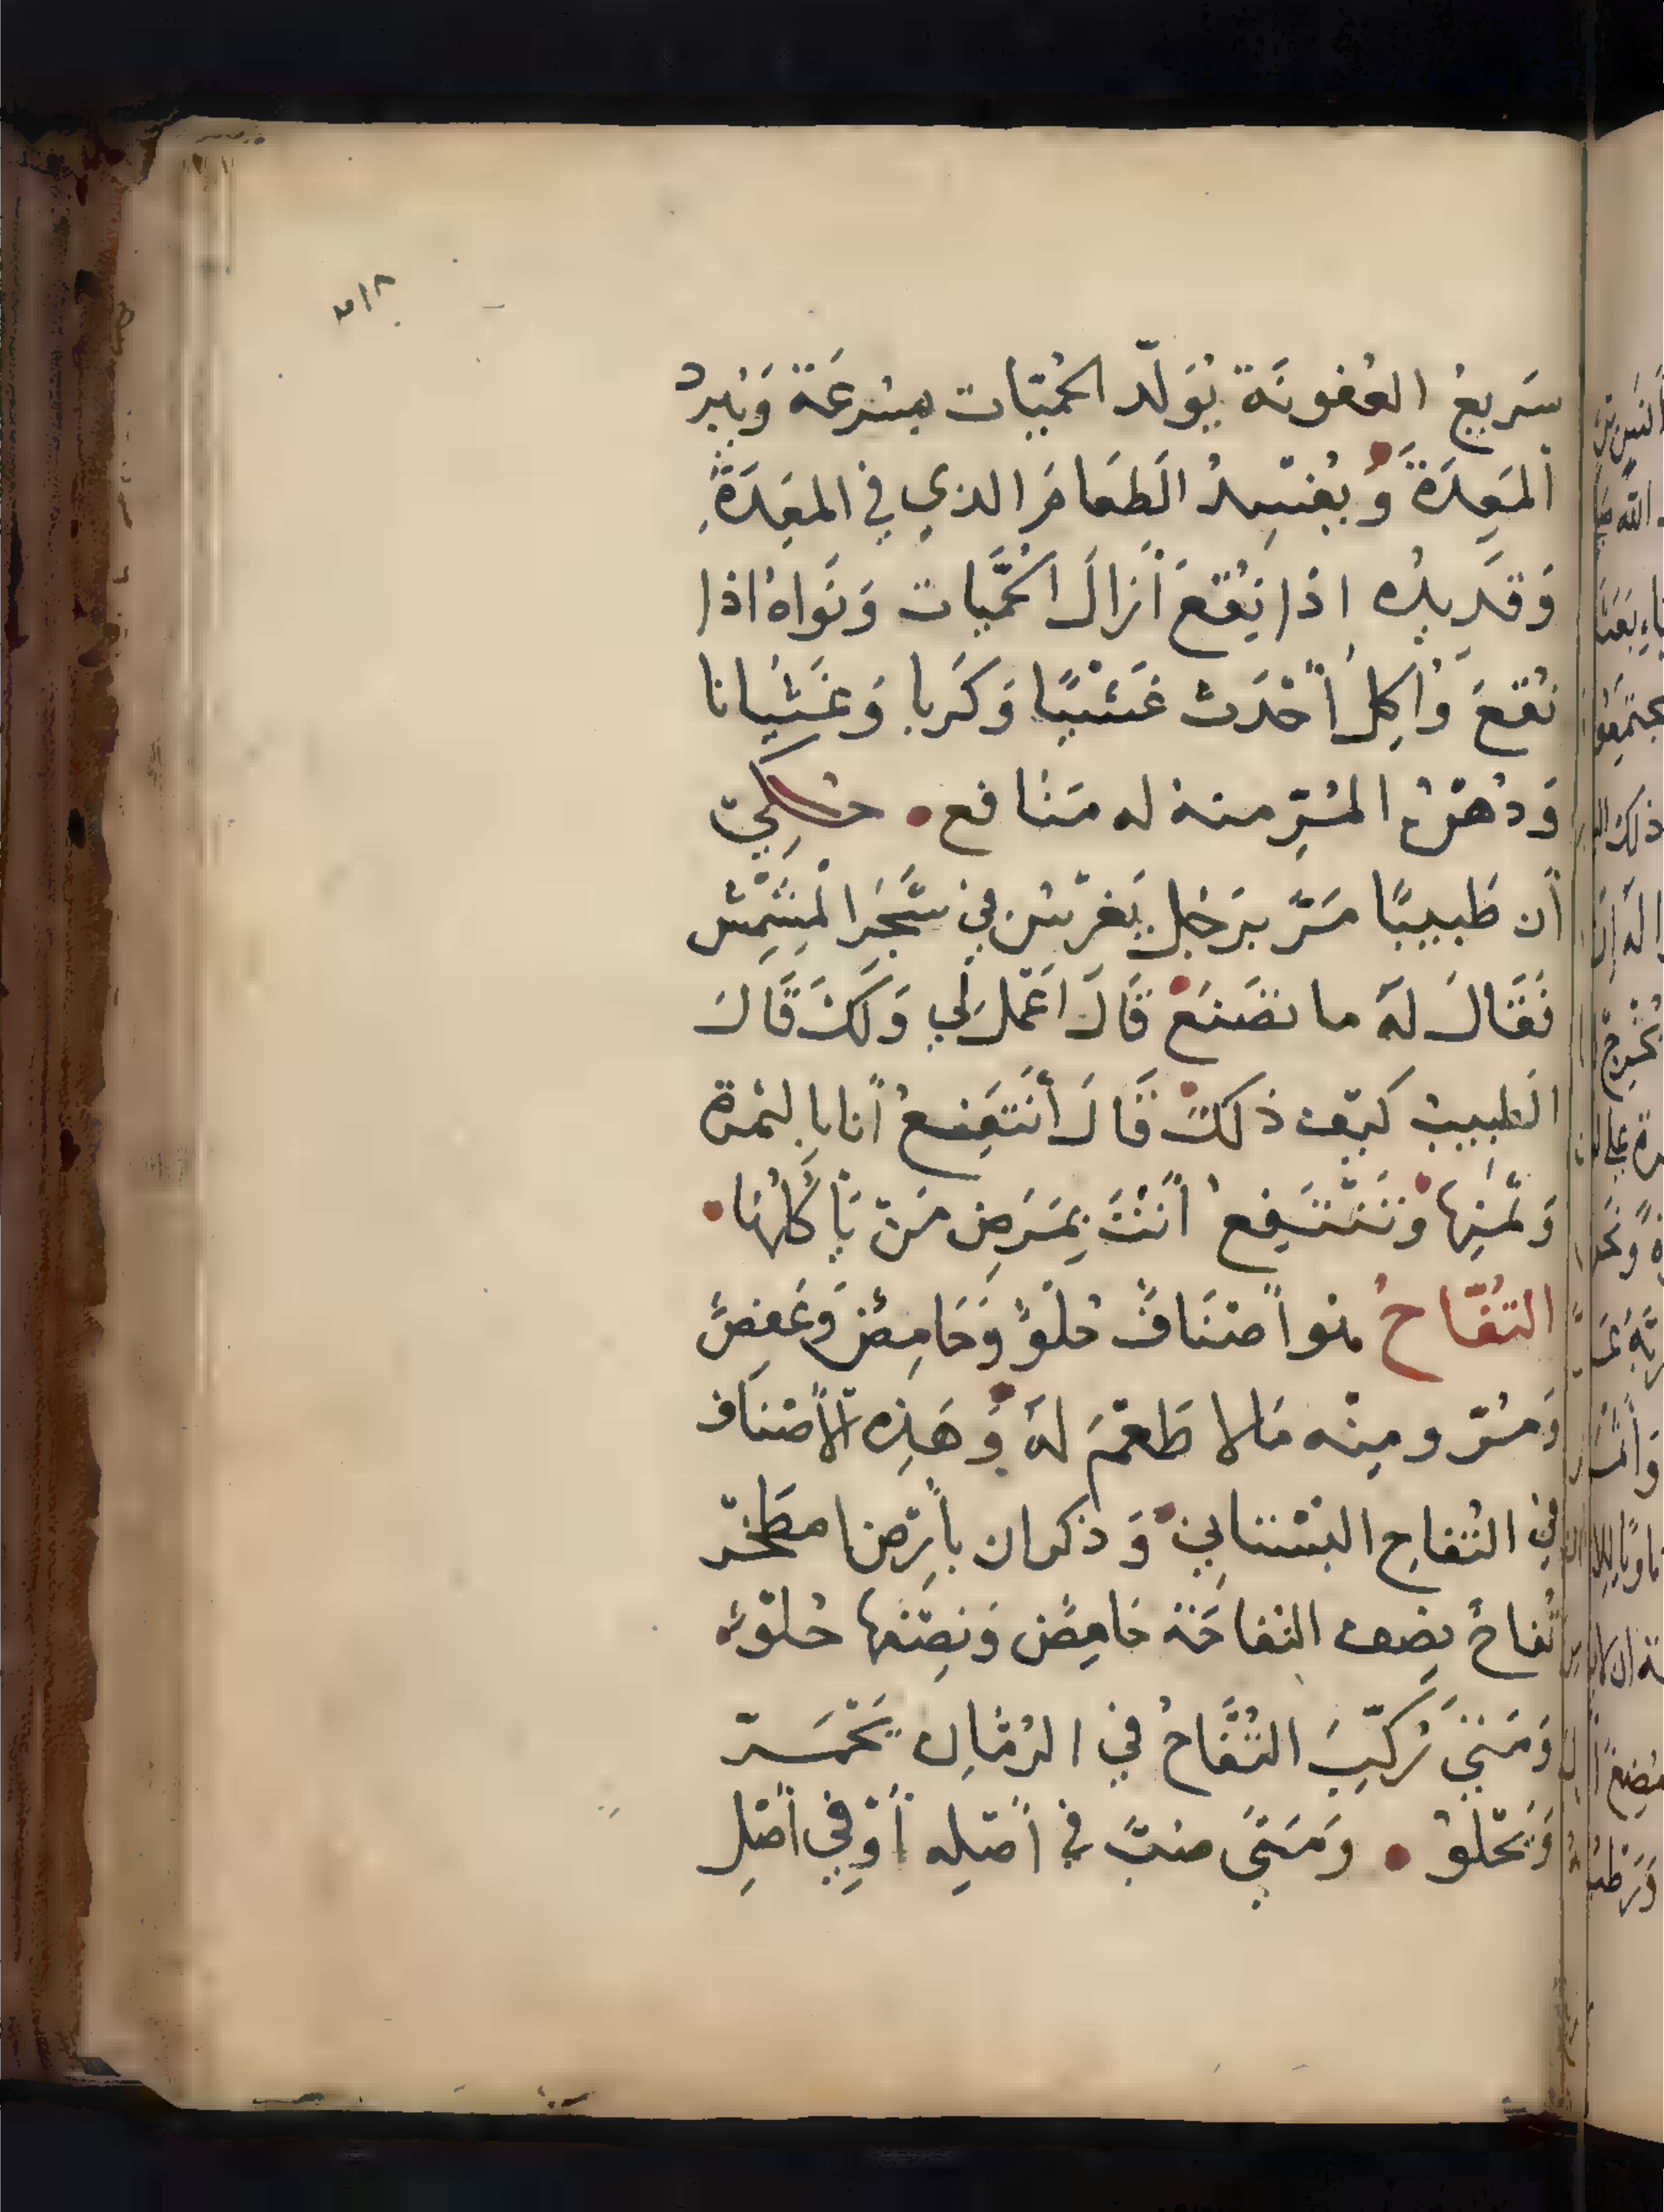 ٣١٨
سَريعُ العُفونَة يُوَلّد الحُمّيَات بسُرعَة وَيُبرد
المَعِدَةَ وَيُفسِدُ الطَعَامَ الذي في المعِدَة
وَقَدِيدُه اذا نُقعَ أزالَ الحُمَّيات وَنَواهُ اذا
نُقعَ وَاُكِلَ أحْدَثَ غَشْيًا وَكَربا وَغَثيَانا
وَدُهْنُ المُرّ منهُ له مَنَافع حُكِيَ
أن طَبيبًا مَرَّ برَجُل يَغرِسُ في شَجَر المشْمِش
فَقَالَ لَه ما تَصْنَعُ قَالَ اَعْمَلُ لي وَلَكَ قَالَ
الطبيبُ كَيفَ ذلكَ قَالَ أَنتَفِعُ أنا بالثمرة
وَثَمَنِها وَتَنْتَفِعُ أَنْتَ بِمَرَضِ مَنْ يَأكُلُهَا
التُفّاحُ هو أصْنَافٌ حُلْوٌ وَحَامِضٌ وَعَفِصٌ
وَمُرّ ومِنْه مَالا طَعْمَ لَهُ وَهَذِه الأصْنَاف
في التُفاح البُسْتانِي وَذكر ان بأرْض اصطخْر
تُفاحٌ نِصف التُفاحَة حَامِض وَنِصْفها حُلوٌ
وَمَتَى رُكّبَ التُفَّاحُ في الرُمّان يَحْمَرّ
وَيَحْلُو وَمَتَى صُبَّ في أصْلِه أوْ في أصْلِ